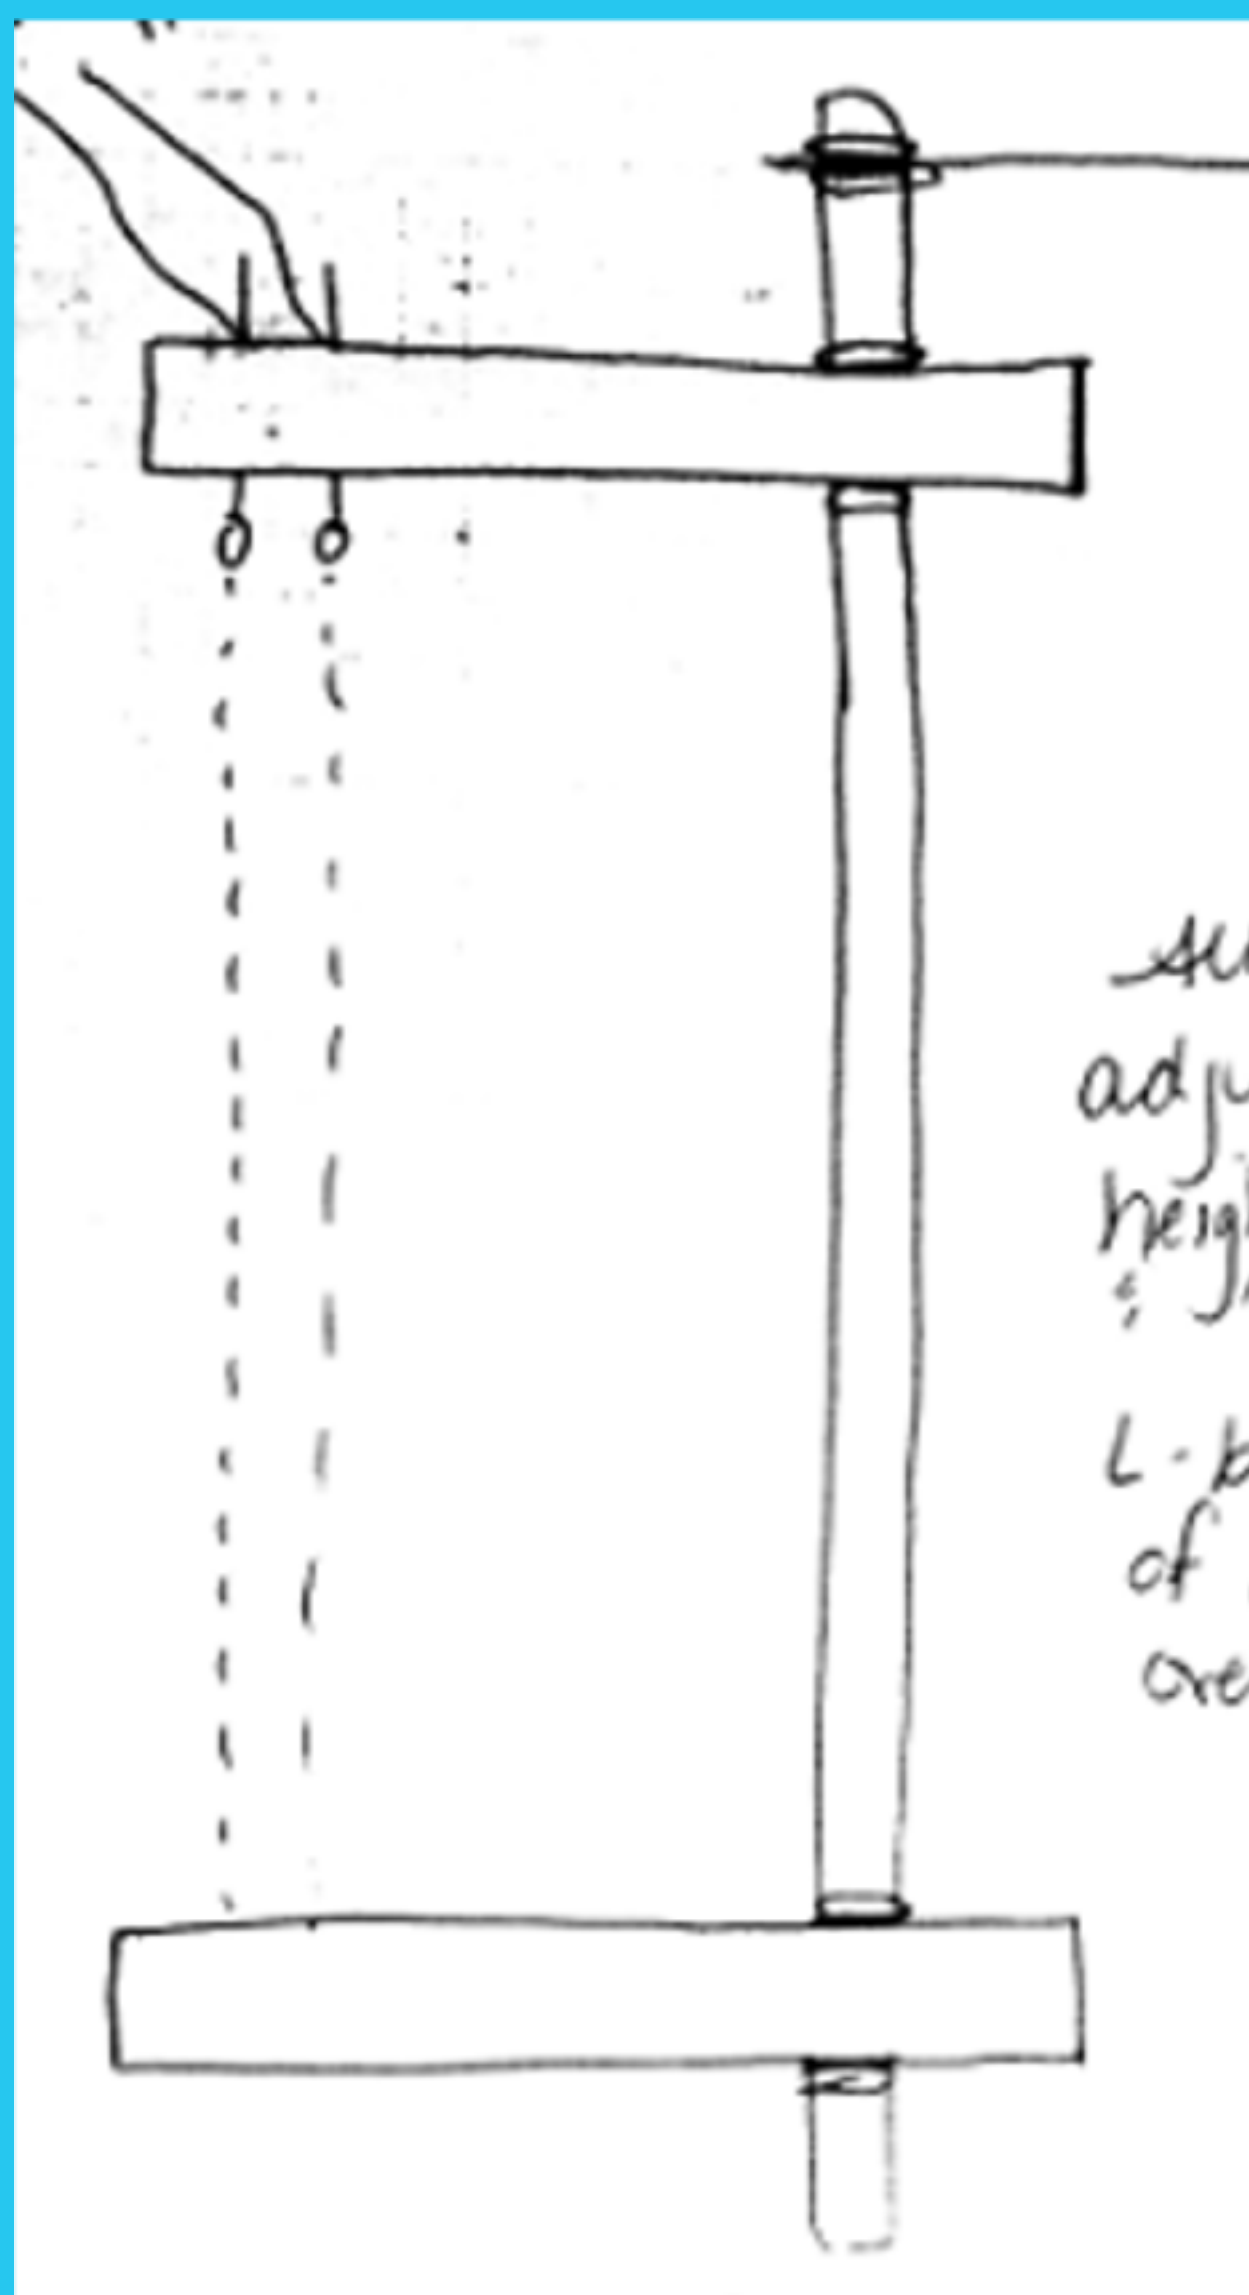 adju
heigh
&
L-b
of
cre